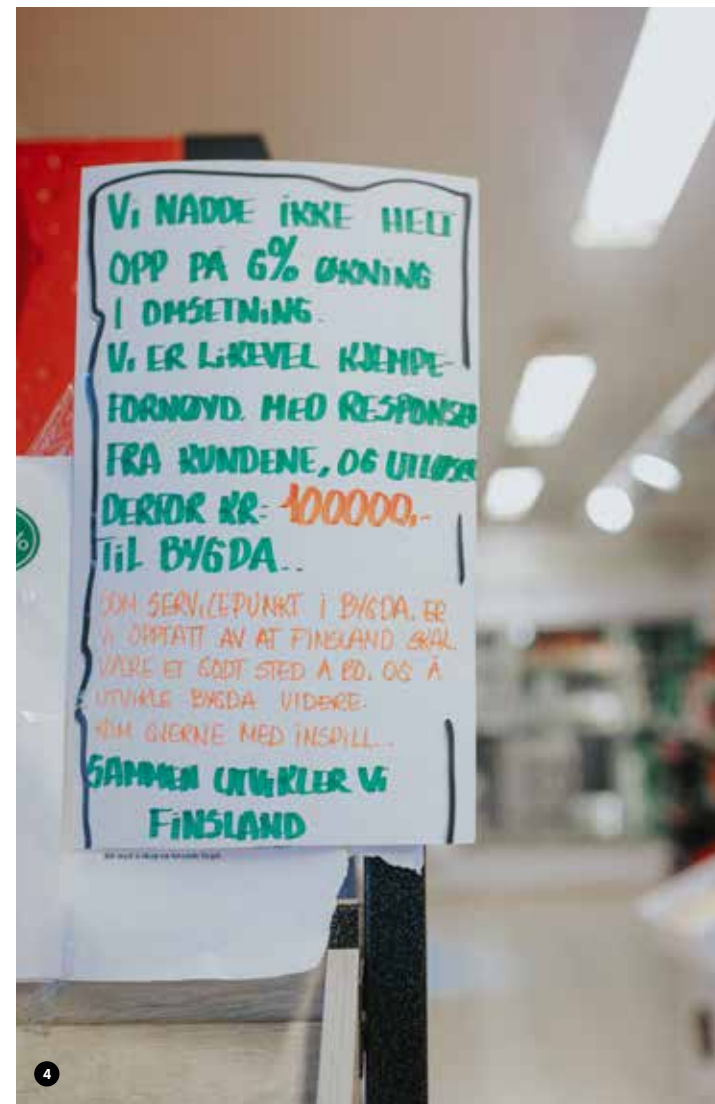 Vi NÅDDE iKKE HELT
OPP PÅ 6% ØKNING
I OMSETNING.
Vi ER LiKEVEL KJEMPE-
FORNØYD. MED RESPONSEN
FRA KUNDENE, OG UTLØSER
DERFOR KR: 100000,-
TiL BYGDA...
SOM SERViCEPUNKT i BYGDA, ER
Vi OPPTATT AV AT FINSLAND SKAL
VÆRE ET GODT STED Å BO, OG Å
UTVIKLE BYGDA VIDERE.
KOM GJERNE MED iNSPILL...
SAMMEN UTViKLER Vi
FiNSLAND
%
4